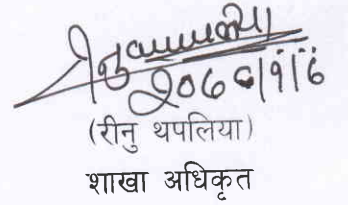 २०७८।१।६
(रीनु थपलिया)
शाखा अधिकृत